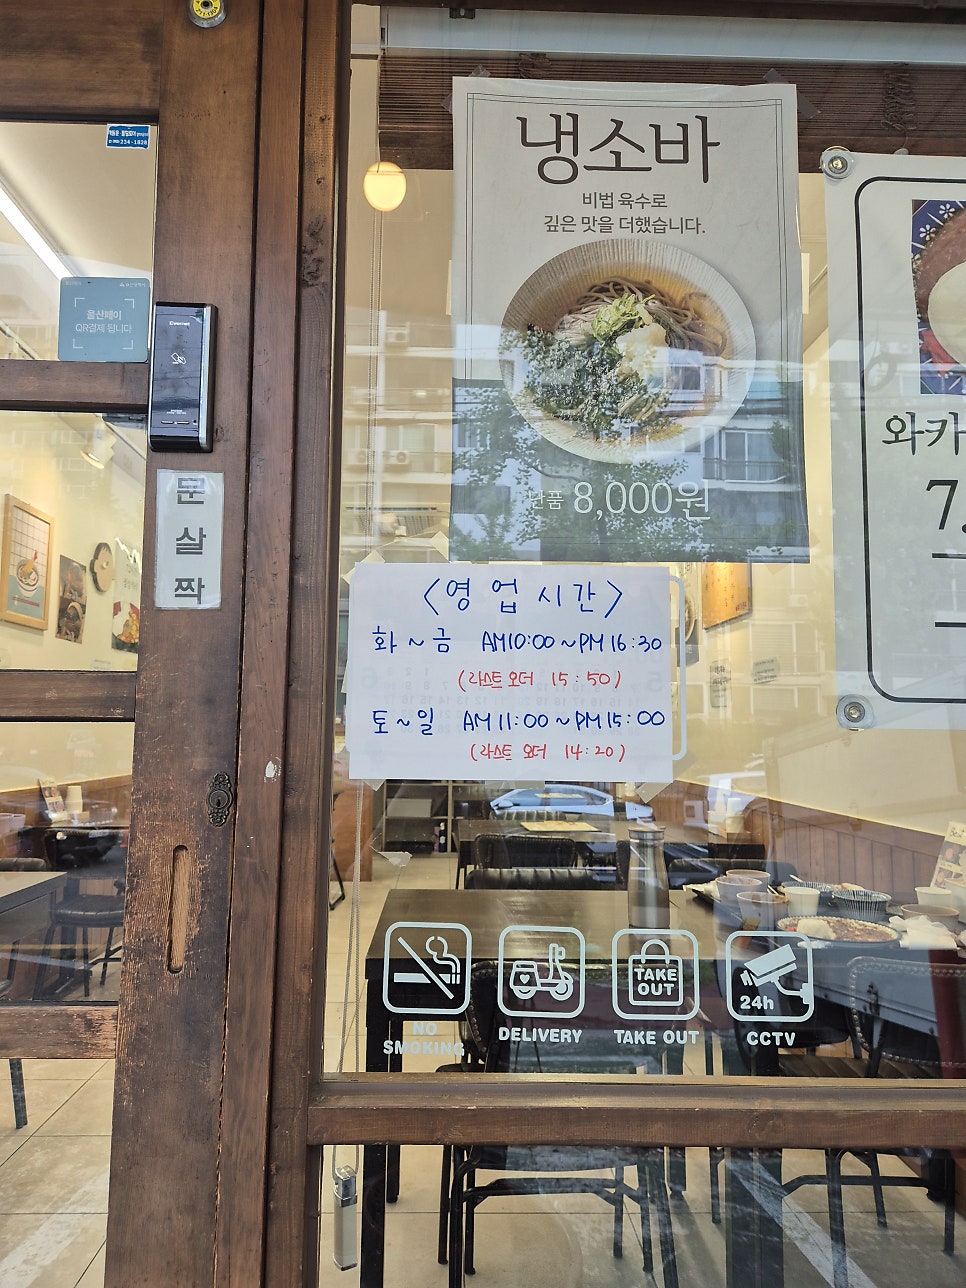 냉소바
비법 육수로
깊은 맛을 더했습니다.
단품 8,000원
와카
7,
울산페이
QR결제 됩니다
Evernet
문
살
짝
<영업시간>
화~금 AM10:00~PM16:30
(라스트오더 15:50)
토~일 AM11:00~PM15:00
(라스트 오더 14:20)
TAKE
OUT
24h
NO
SMOKING
DELIVERY
TAKE OUT
CCTV